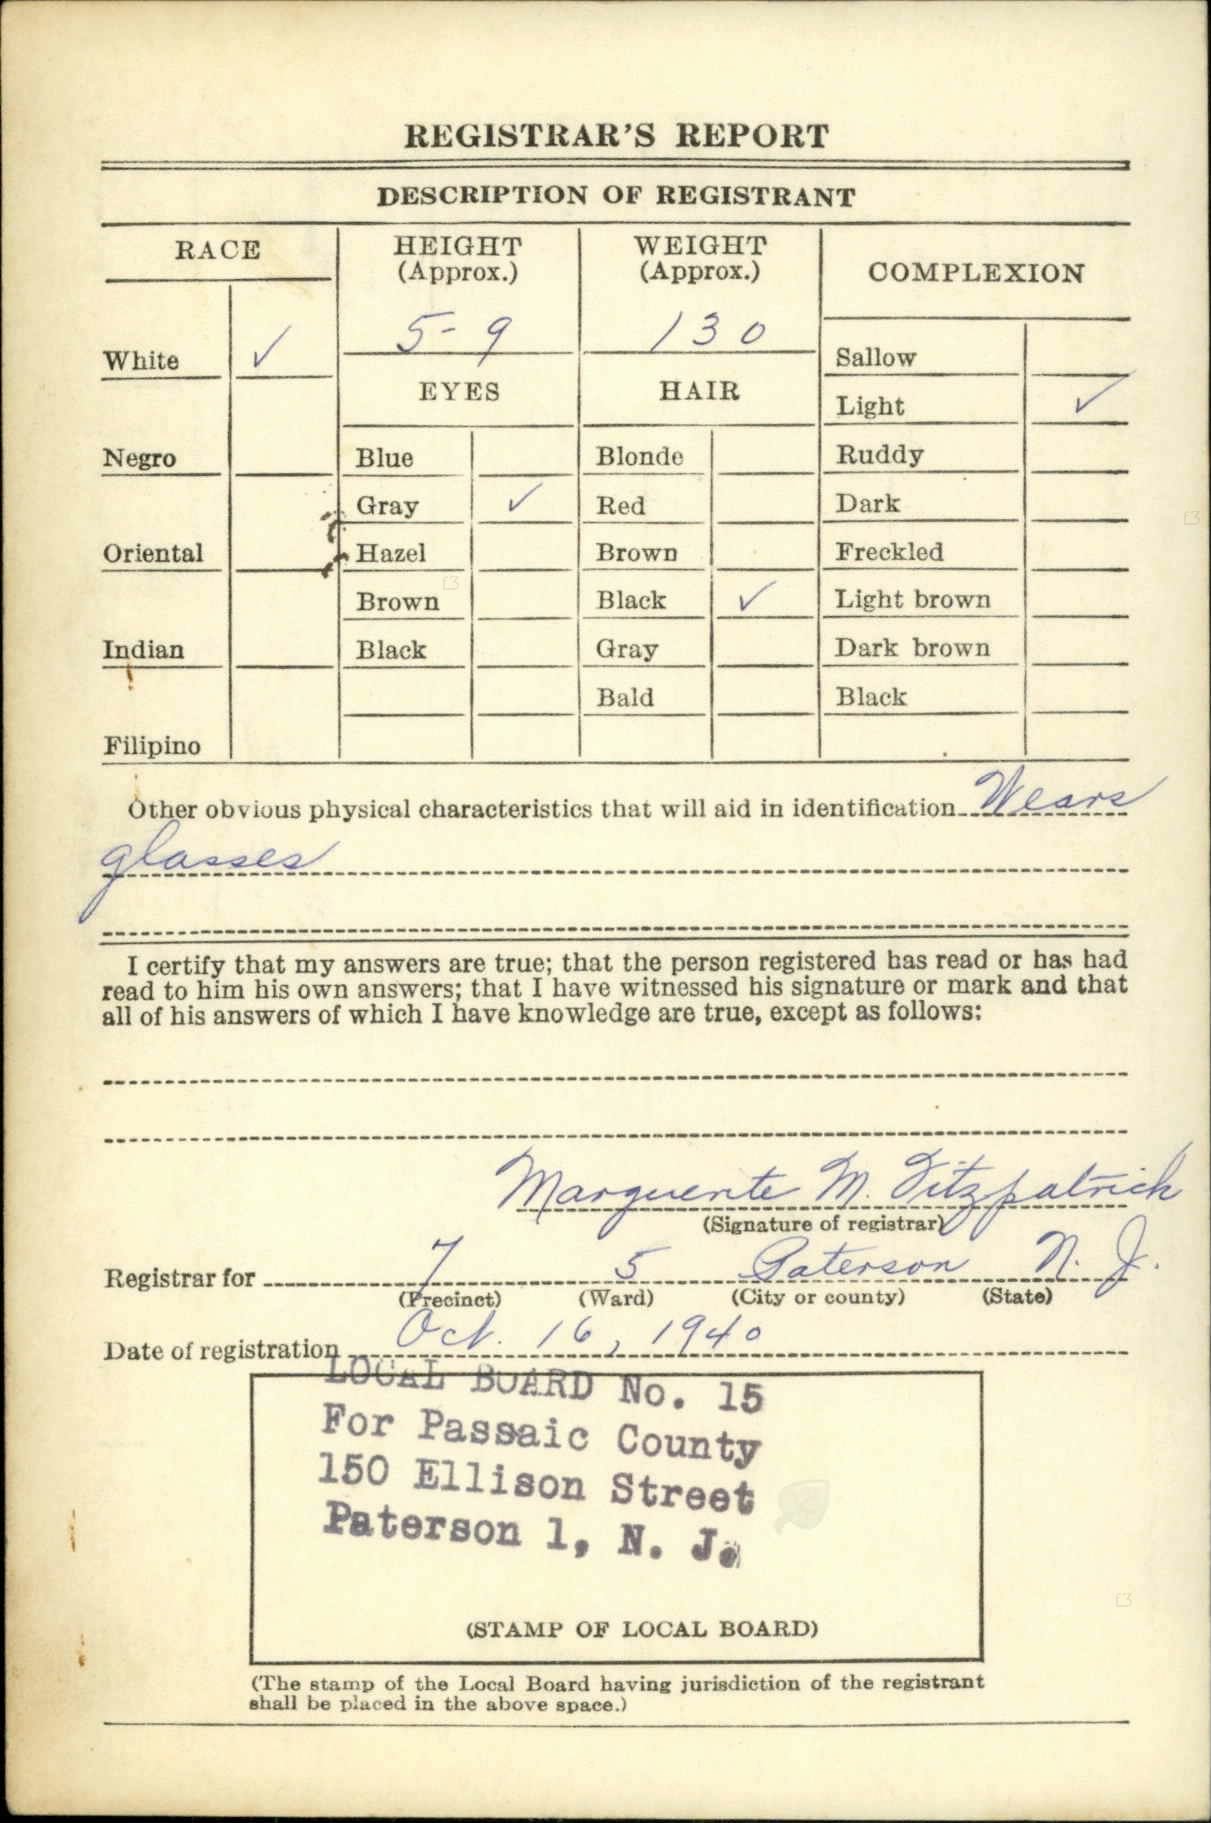 REGISTRAR'S REPORT
DESCRIPTION OF REGISTRANT
RACE
HEIGHT
(Approx.)
WEIGHT
(Approx.)
COMPLEXION
White ✓
5-9
130
Sallow
EYES
HAIR
Light ✓
Negro
Blue
Blonde
Ruddy
Gray ✓
Red
Dark
Oriental
Hazel
Brown
Freckled
Brown
Black ✓
Light brown
Indian
Black
Gray
Dark brown
Bald
Black
Filipino
Other obvious physical characteristics that will aid in identification Wears
glasses
I certify that my answers are true; that the person registered has read or has had
read to him his own answers; that I have witnessed his signature or mark and that
all of his answers of which I have knowledge are true, except as follows:
Marguerite M. Fitzpatrick
(Signature of registrar)
Registrar for 7 5 Paterson N. J.
(Precinct) (Ward) (City or county) (State)
Date of registration Oct. 16, 1940
LOCAL BOARD No. 15
For Passaic County
150 Ellison Street
Paterson 1, N. J.
(STAMP OF LOCAL BOARD)
(The stamp of the Local Board having jurisdiction of the registrant
shall be placed in the above space.)